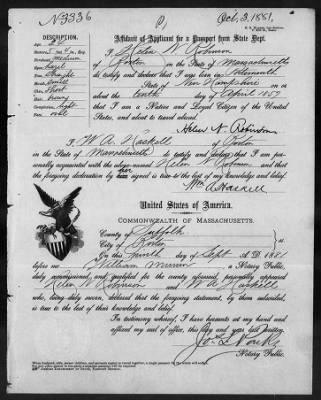 N 3336
Oct. 3. 1881.
DESCRIPTION.
Affidavit of Applicant for a Passport from State Dept.
I Helen N. Robinson
of Boston in the State of Massachusetts
do testify and declare that I was born in Portsmouth
in the State of New Hampshire on or
about the tenth day of April 1857
that I am a Native and Legal Citizen of the United
States, and about to travel abroad.
Helen N. Robinson
I, W. A. Haskell of Boston
in the State of Massachusetts do testify and say that I am per-
sonally acquainted with the above-named Helen N. Robinson and that
the foregoing declaration by her signed is true to the best of my knowledge and belief.
Wm A Haskell
United States of America.
COMMONWEALTH OF MASSACHUSETTS.
County of Suffolk
City of Boston
On this ninth day of Sept A.D. 1881
before me a Notary Public,
duly commissioned and qualified for the county aforesaid, personally appeared
Helen N Robinson and W A Haskell
who, being duly sworn, declared that the foregoing statement, by them subscribed,
is true to the best of their knowledge and belief.
In testimony whereof, I have hereunto set my hand and
affixed my seal of office, this day and year last written.
Notary Public.